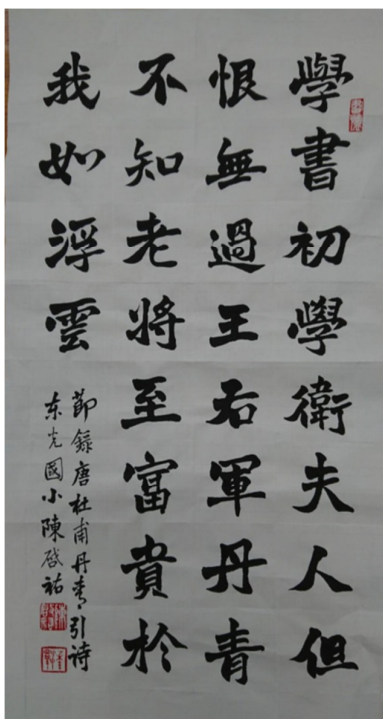 學書初學衛夫人但
恨無過王右軍丹青
不知老將至富貴於
我如浮雲
節錄唐杜甫丹青引诗
东光國小陳啓祐